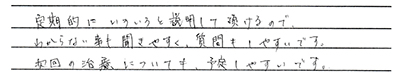 定期的にいろいろと説明して頂けるので、
わからない事も聞きやすく、質問もしやすいです。
次回の治療についても、予定しやすいです。